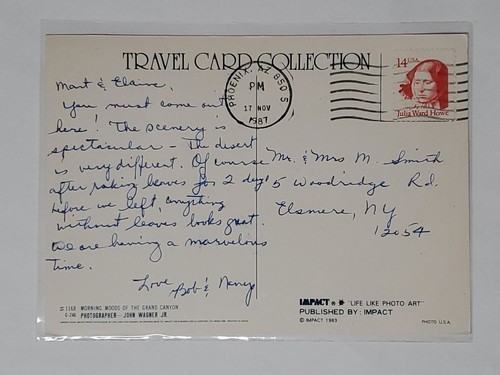 TRAVEL CARD COLLECTION
Mart & Elaine,
You must come out
here! The scenery is
spectacular - The desert
is very different. Of course
after raking leaves for 2 days
before we left, anything
without leaves looks great.
We are having a marvelous
time.
Love
Bob & Nancy
PHOENIX, AZ 850
PM
17 NOV
1987
14 USA
Julia Ward Howe
Mr. & Mrs M. Smith
5 Woodridge Rd.
Elsmere, NY
12054
1168 MORNING MOODS OF THE GRAND CANYON
PHOTOGRAPHER - JOHN WAGNER JR.
IMPACT ® "LIFE LIKE PHOTO ART"
PUBLISHED BY: IMPACT
© IMPACT 1983
PHOTO U.S.A.